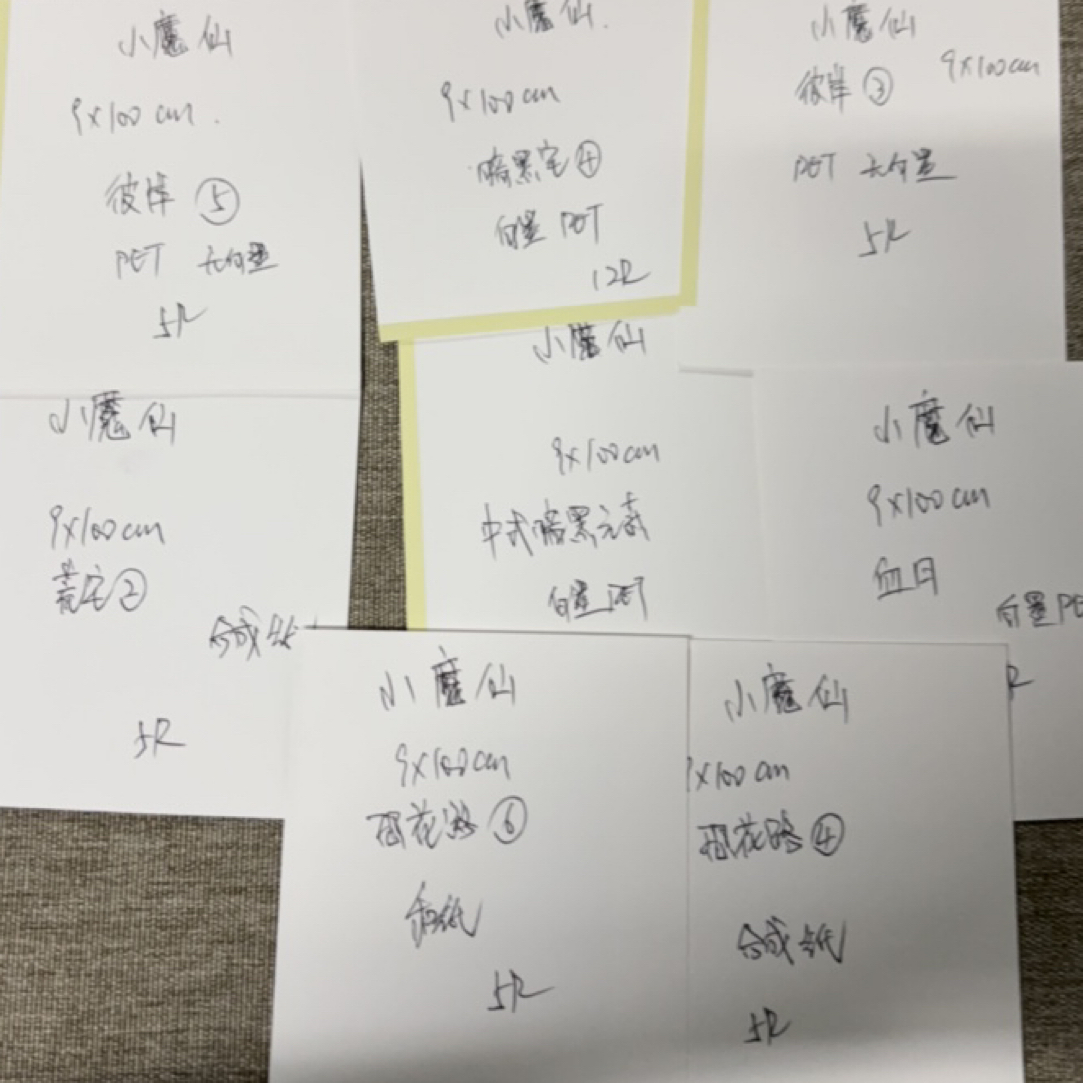 小魔仙
9x100cm.
彼岸⑤
PET 无白墨
5R
小魔仙.
9x100cm
暗黑宅④
白墨 PET
12R
小魔仙
彼岸③ 9x100cm
PET 无白墨
5R
小魔仙
9x100cm
荒宅②
合成
5R
小魔仙
9x100cm
中式暗黑元素
白墨PET
小魔仙
9x100cm
血日
白墨PE
R
小魔仙
9x100cm
花路⑥
和纸
5R
小魔仙
x100cm
花路④
合成纸
5R